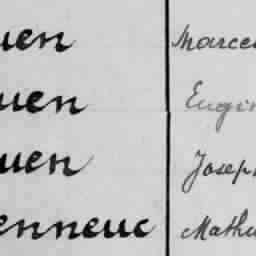 uen Marce
uen Eugin
uen Joseph
enneuc Mathu